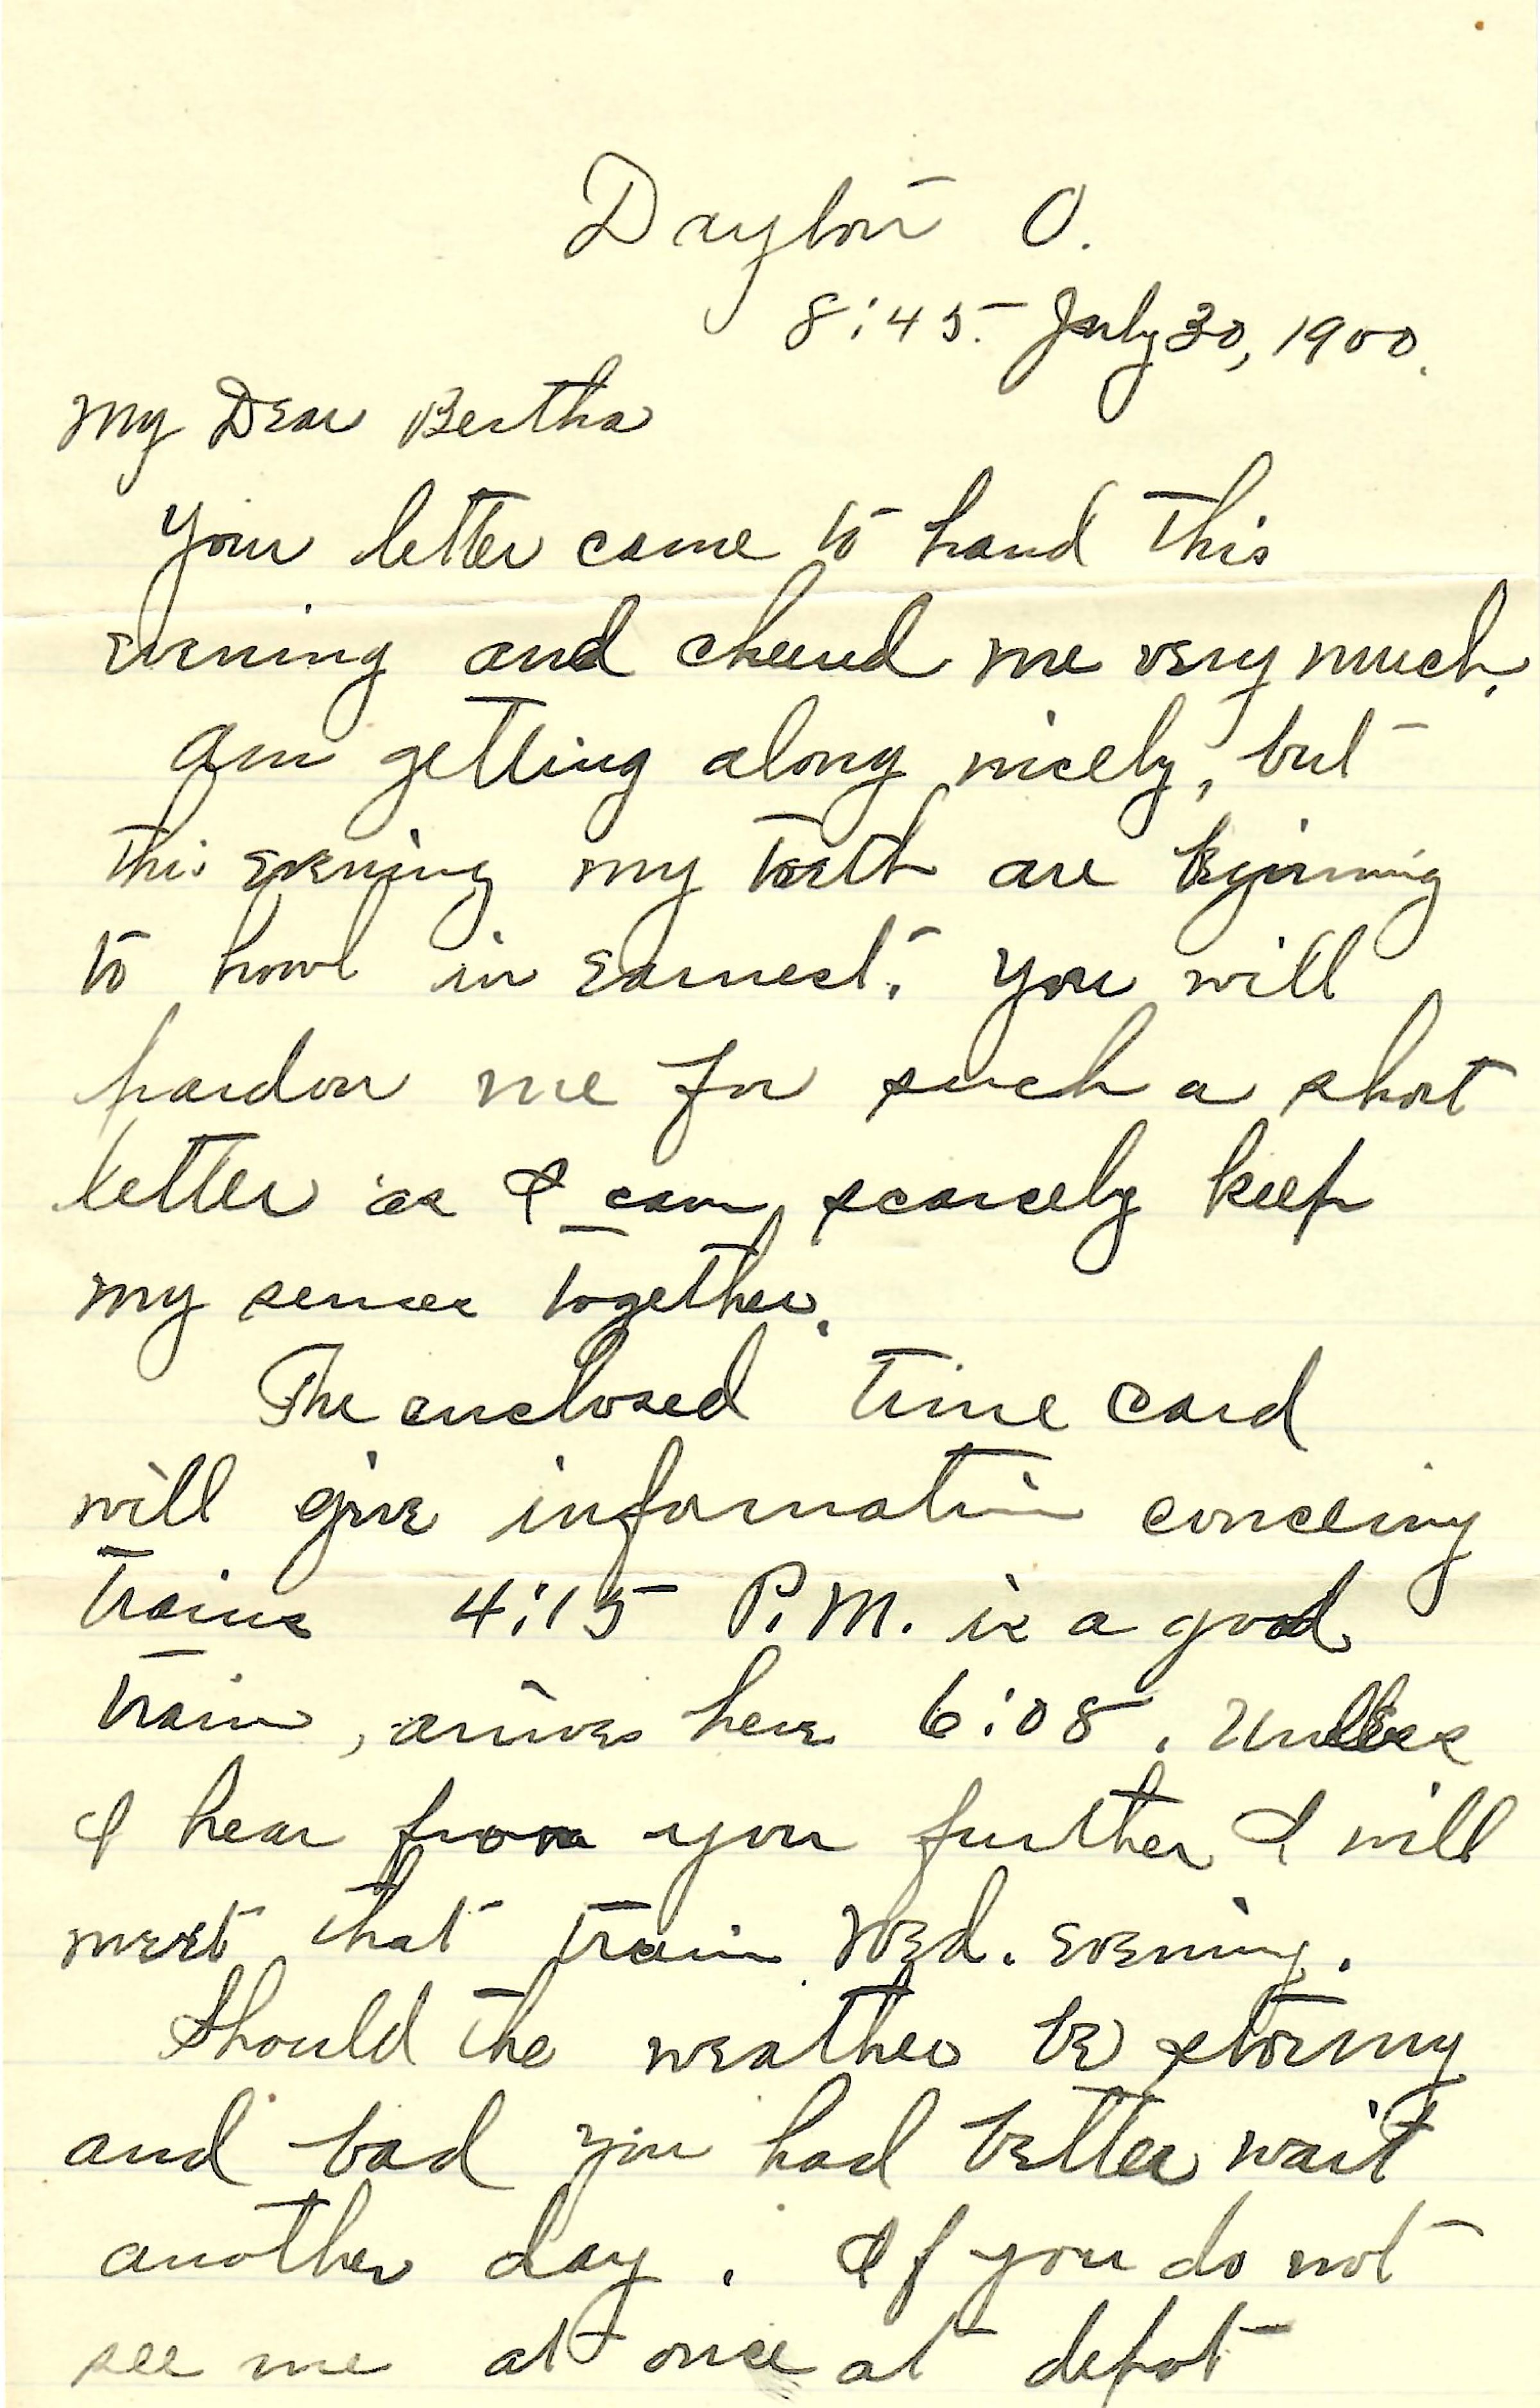 Dayton O.
8:45. July 30, 1900.
My Dear Bertha
Your letter came to hand this
evening and cheered me very much.
Am getting along nicely, but
this evening my teeth are begining
to howl in earnest. You will
pardon me for such a short
letter as I can scarcely keep
my senses together.
The enclosed time card
will give information concerning
trains 4:15 P.M. is a good
train, arrives here 6:08. Unless
I hear from you further I will
meet that train Wed. evening.
Should the weather be stormy
and bad you had better wait
another day. If you do not
see me at once at depot